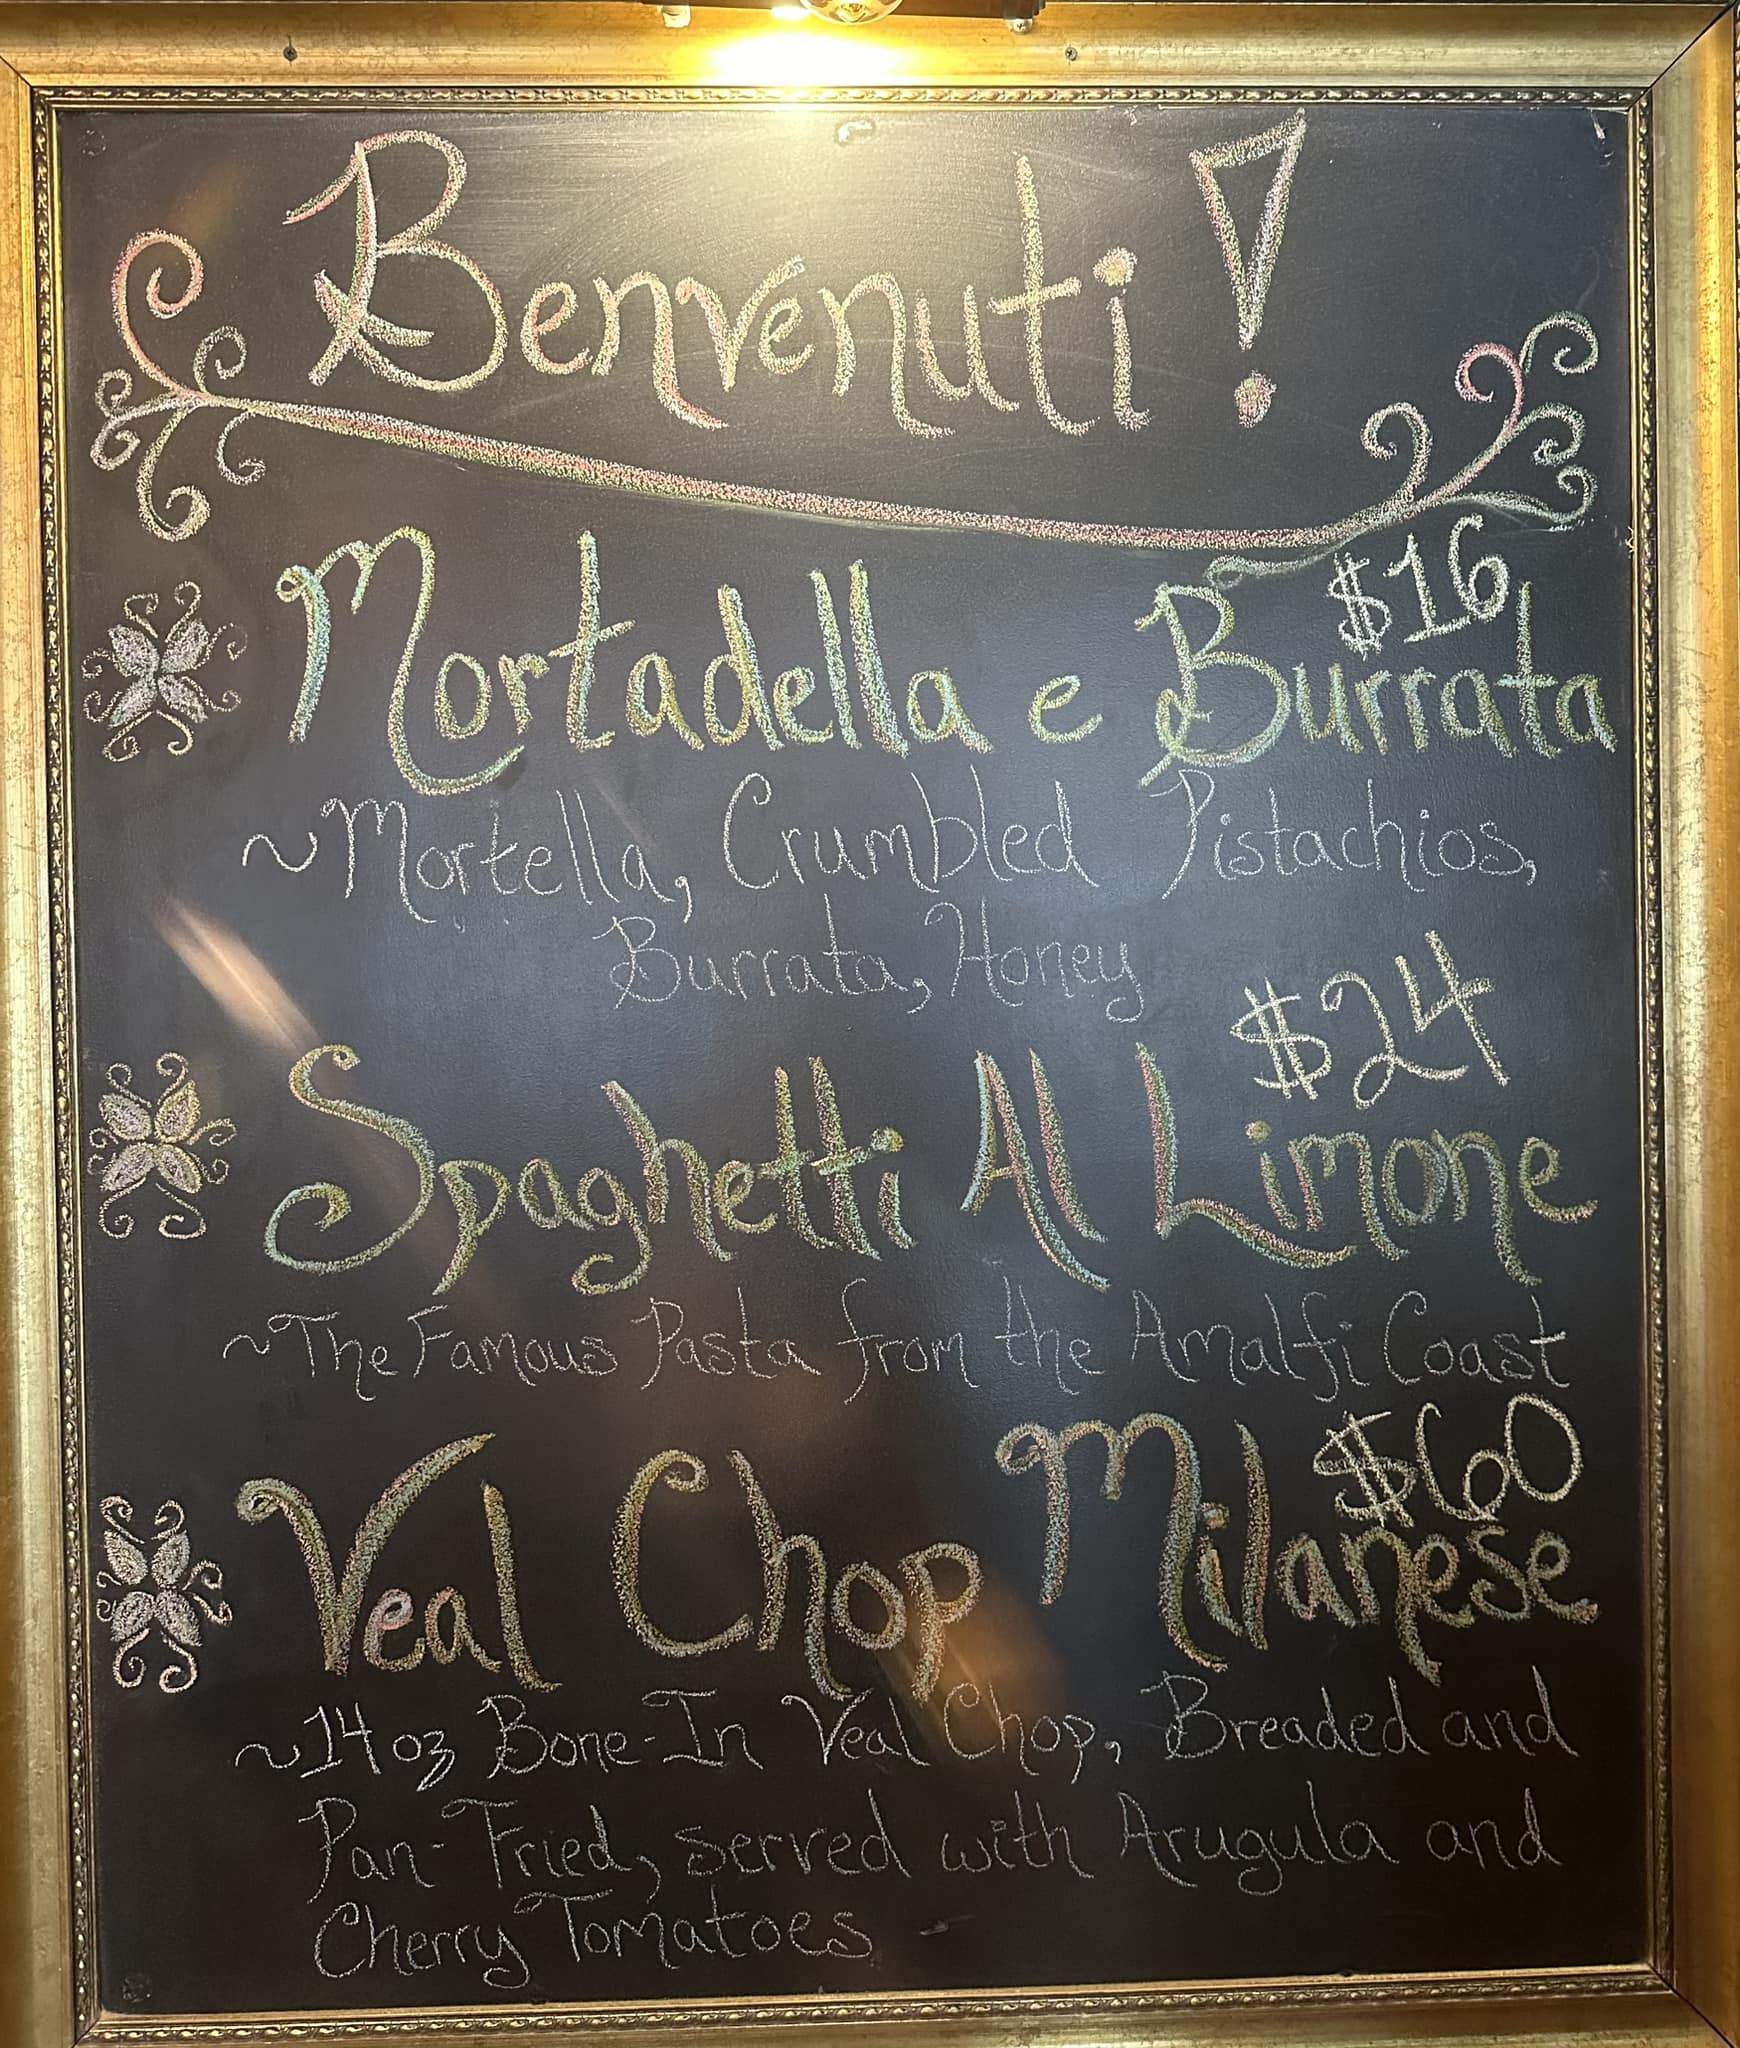 Benvenuti!
$16
Mortadella e Burrata
~Mortella, Crumbled Pistachios,
Burrata, Honey
$24
Spaghetti Al Limone
~The Famous Pasta from the Amalfi Coast
$60
Veal Chop Milanese
~14oz Bone-In Veal Chop, Breaded and
Pan-Fried, served with Arugula and
Cherry Tomatoes